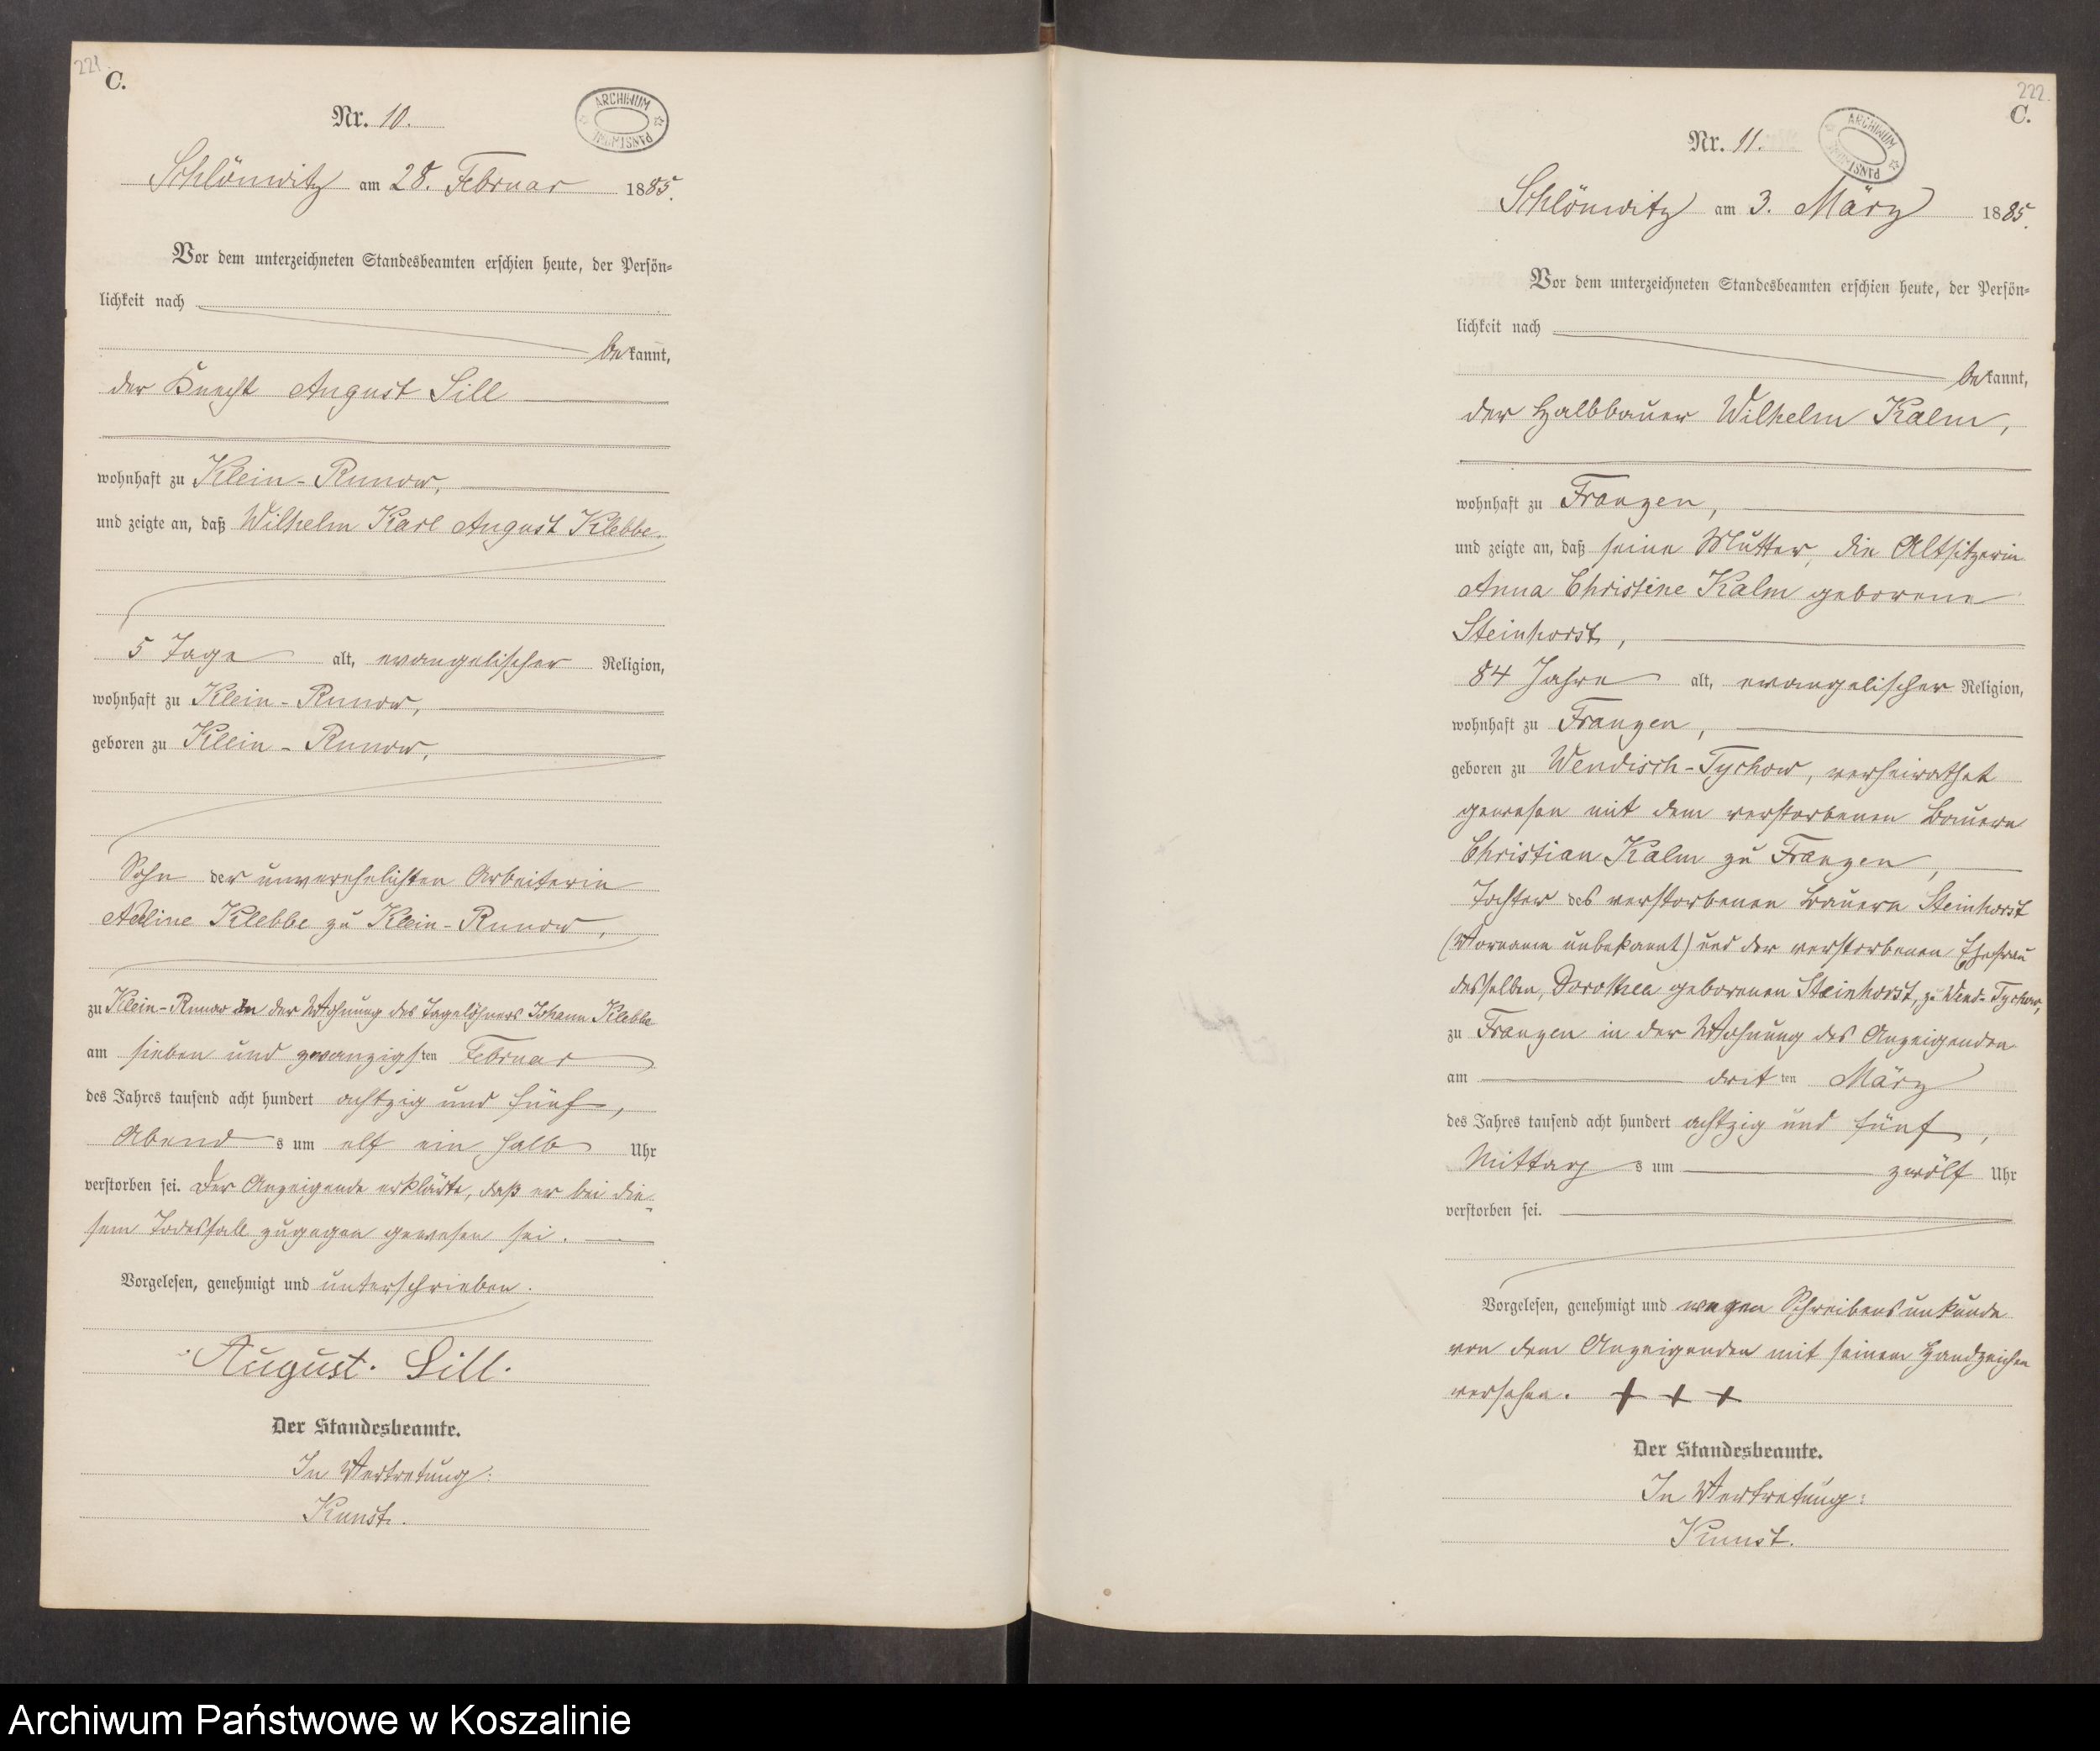 221.
C.
Nr. 10.
ARCHIWUM PAŃSTWOWE
Schlönwitz am 28. Februar 1885.
Vor dem unterzeichneten Standesbeamten erschien heute, der Persön-
lichkeit nach
bekannt,
der Knecht August Sill
wohnhaft zu Klein-Runow,
und zeigte an, daß Wilhelm Karl August Klebbe.
5 Tage alt, evangelischer Religion,
wohnhaft zu Klein-Runow,
geboren zu Klein-Runow,
Sohn der unverehelichten Arbeiterin
Klebbe zu Klein-Runow,
zu Klein-Runow in der Wohnung des Tagelöhners Johann Klebbe
am sieben und zwanzigsten Februar
des Jahres tausend acht hundert achtzig und fünf,
Abends um elf ein halb Uhr
verstorben sei. Der Anzeigende erklärte, daß er bei die-
sem Todesfall zugegen gewesen sei.
Vorgelesen, genehmigt und unterschrieben.
August. Sill.
Der Standesbeamte.
In Vertretung:
Kunst.
222.
C.
Nr. 11.
ARCHIWUM PAŃSTWOWE
Schlönwitz am 3. März 1885.
Vor dem unterzeichneten Standesbeamten erschien heute, der Persön-
lichkeit nach
bekannt,
der Halbbauer Wilhelm Kalm,
wohnhaft zu Franzen,
und zeigte an, daß seine Mutter, die Altsitzerin
Anna Christine Kalm geborene
Steinhorst,
84 Jahre alt, evangelischer Religion,
wohnhaft zu Franzen,
geboren zu Wendisch-Tychow, verheirathet
gewesen mit dem verstorbenen Bauern
Christian Kalm zu Franzen,
Tochter des verstorbenen Bauern Steinhorst
(Vorname unbekannt) und der verstorbenen Ehefrau
desselben, Dorothea geborenen Steinhorst, zu Wend-Tychow,
zu Franzen in der Wohnung des Anzeigenden
am dritten März
des Jahres tausend acht hundert achtzig und fünf,
Mittags um zwölf Uhr
verstorben sei.
Vorgelesen, genehmigt und wegen Schreibensunkunde
von dem Anzeigenden mit seinem Handzeichen
versehen. + + +
Der Standesbeamte.
In Vertretung:
Kunst.
Archiwum Państwowe w Koszalinie